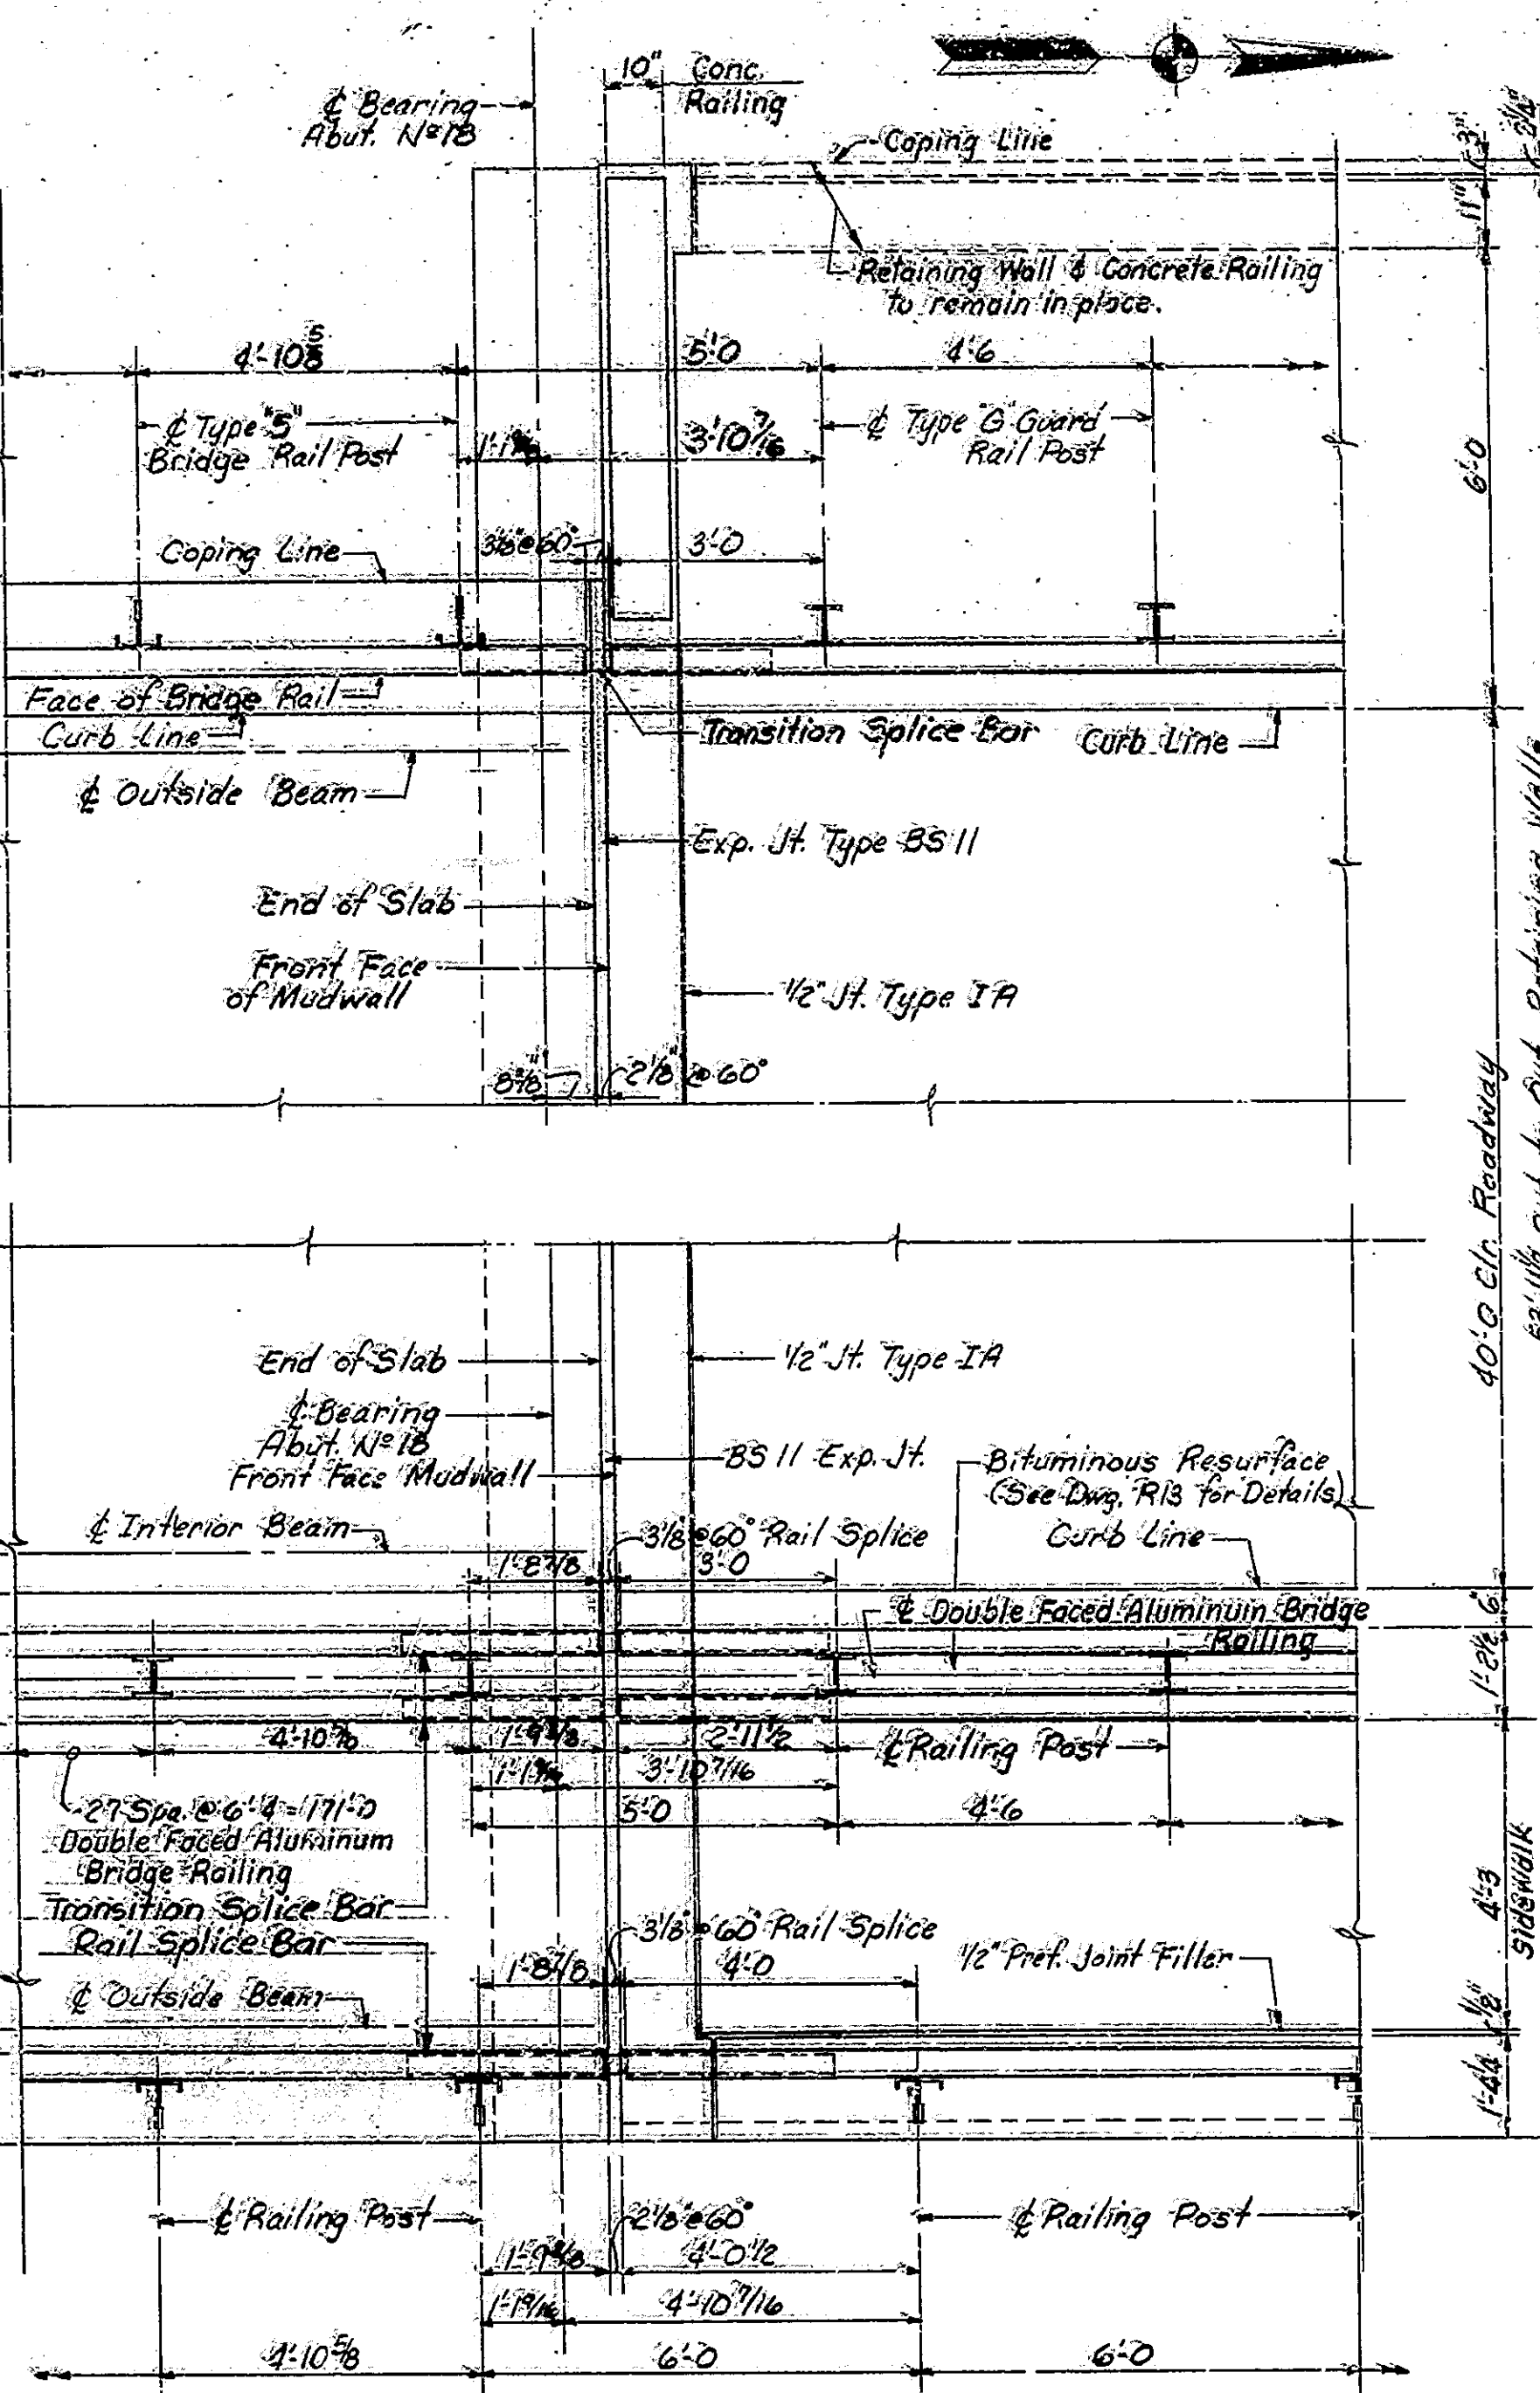 10" Conc.
Railing
℄ Bearing
Abut. Nº 18
Coping Line
Retaining Wall & Concrete Railing
to remain in place.
11"
4'-10 5/8
5'-0
4'-6
℄ Type "5"
Bridge Rail Post
3'-10 7/16
℄ Type "G" Guard
Rail Post
6'-0
Coping Line
3 1/8" @ 60°
3'-0
Face of Bridge Rail
Curb Line
Transition Splice Bar
Curb Line
℄ Outside Beam
Exp. Jt. Type BS 11
End of Slab
Front Face
of Mudwall
1/2" Jt. Type IA
2 1/8" @ 60°
40'-0 Clr. Roadway
Out to Out Retaining Walls
End of Slab
1/2" Jt. Type IA
℄ Bearing
Abut. Nº 18
Front Face Mudwall
BS 11 Exp. Jt.
Bituminous Resurface
(See Dwg. R13 for Details)
℄ Interior Beam
3 1/8" @ 60° Rail Splice
Curb Line
1'-8 7/8
3'-0
℄ Double Faced Aluminum Bridge
Railing
6"
1'-2 1/2
4'-10 5/8
1'-9 3/8
2'-11 1/2
℄ Railing Post
1'-1 9/16
3'-10 7/16
27 Spa. @ 6'-4 = 171'-0
5'-0
4'-6
Double Faced Aluminum
Bridge Railing
Transition Splice Bar
Rail Splice Bar
4'-3
Sidewalk
3 1/8" @ 60° Rail Splice
1'-8 7/8
4'-0
1/2" Pref. Joint Filler
℄ Outside Beam
1/2"
1'-4 1/4
℄ Railing Post
2 1/8" @ 60°
℄ Railing Post
1'-9 3/8
4'-0 1/2
1'-1 9/16
4'-10 7/16
4'-10 5/8
6'-0
6'-0